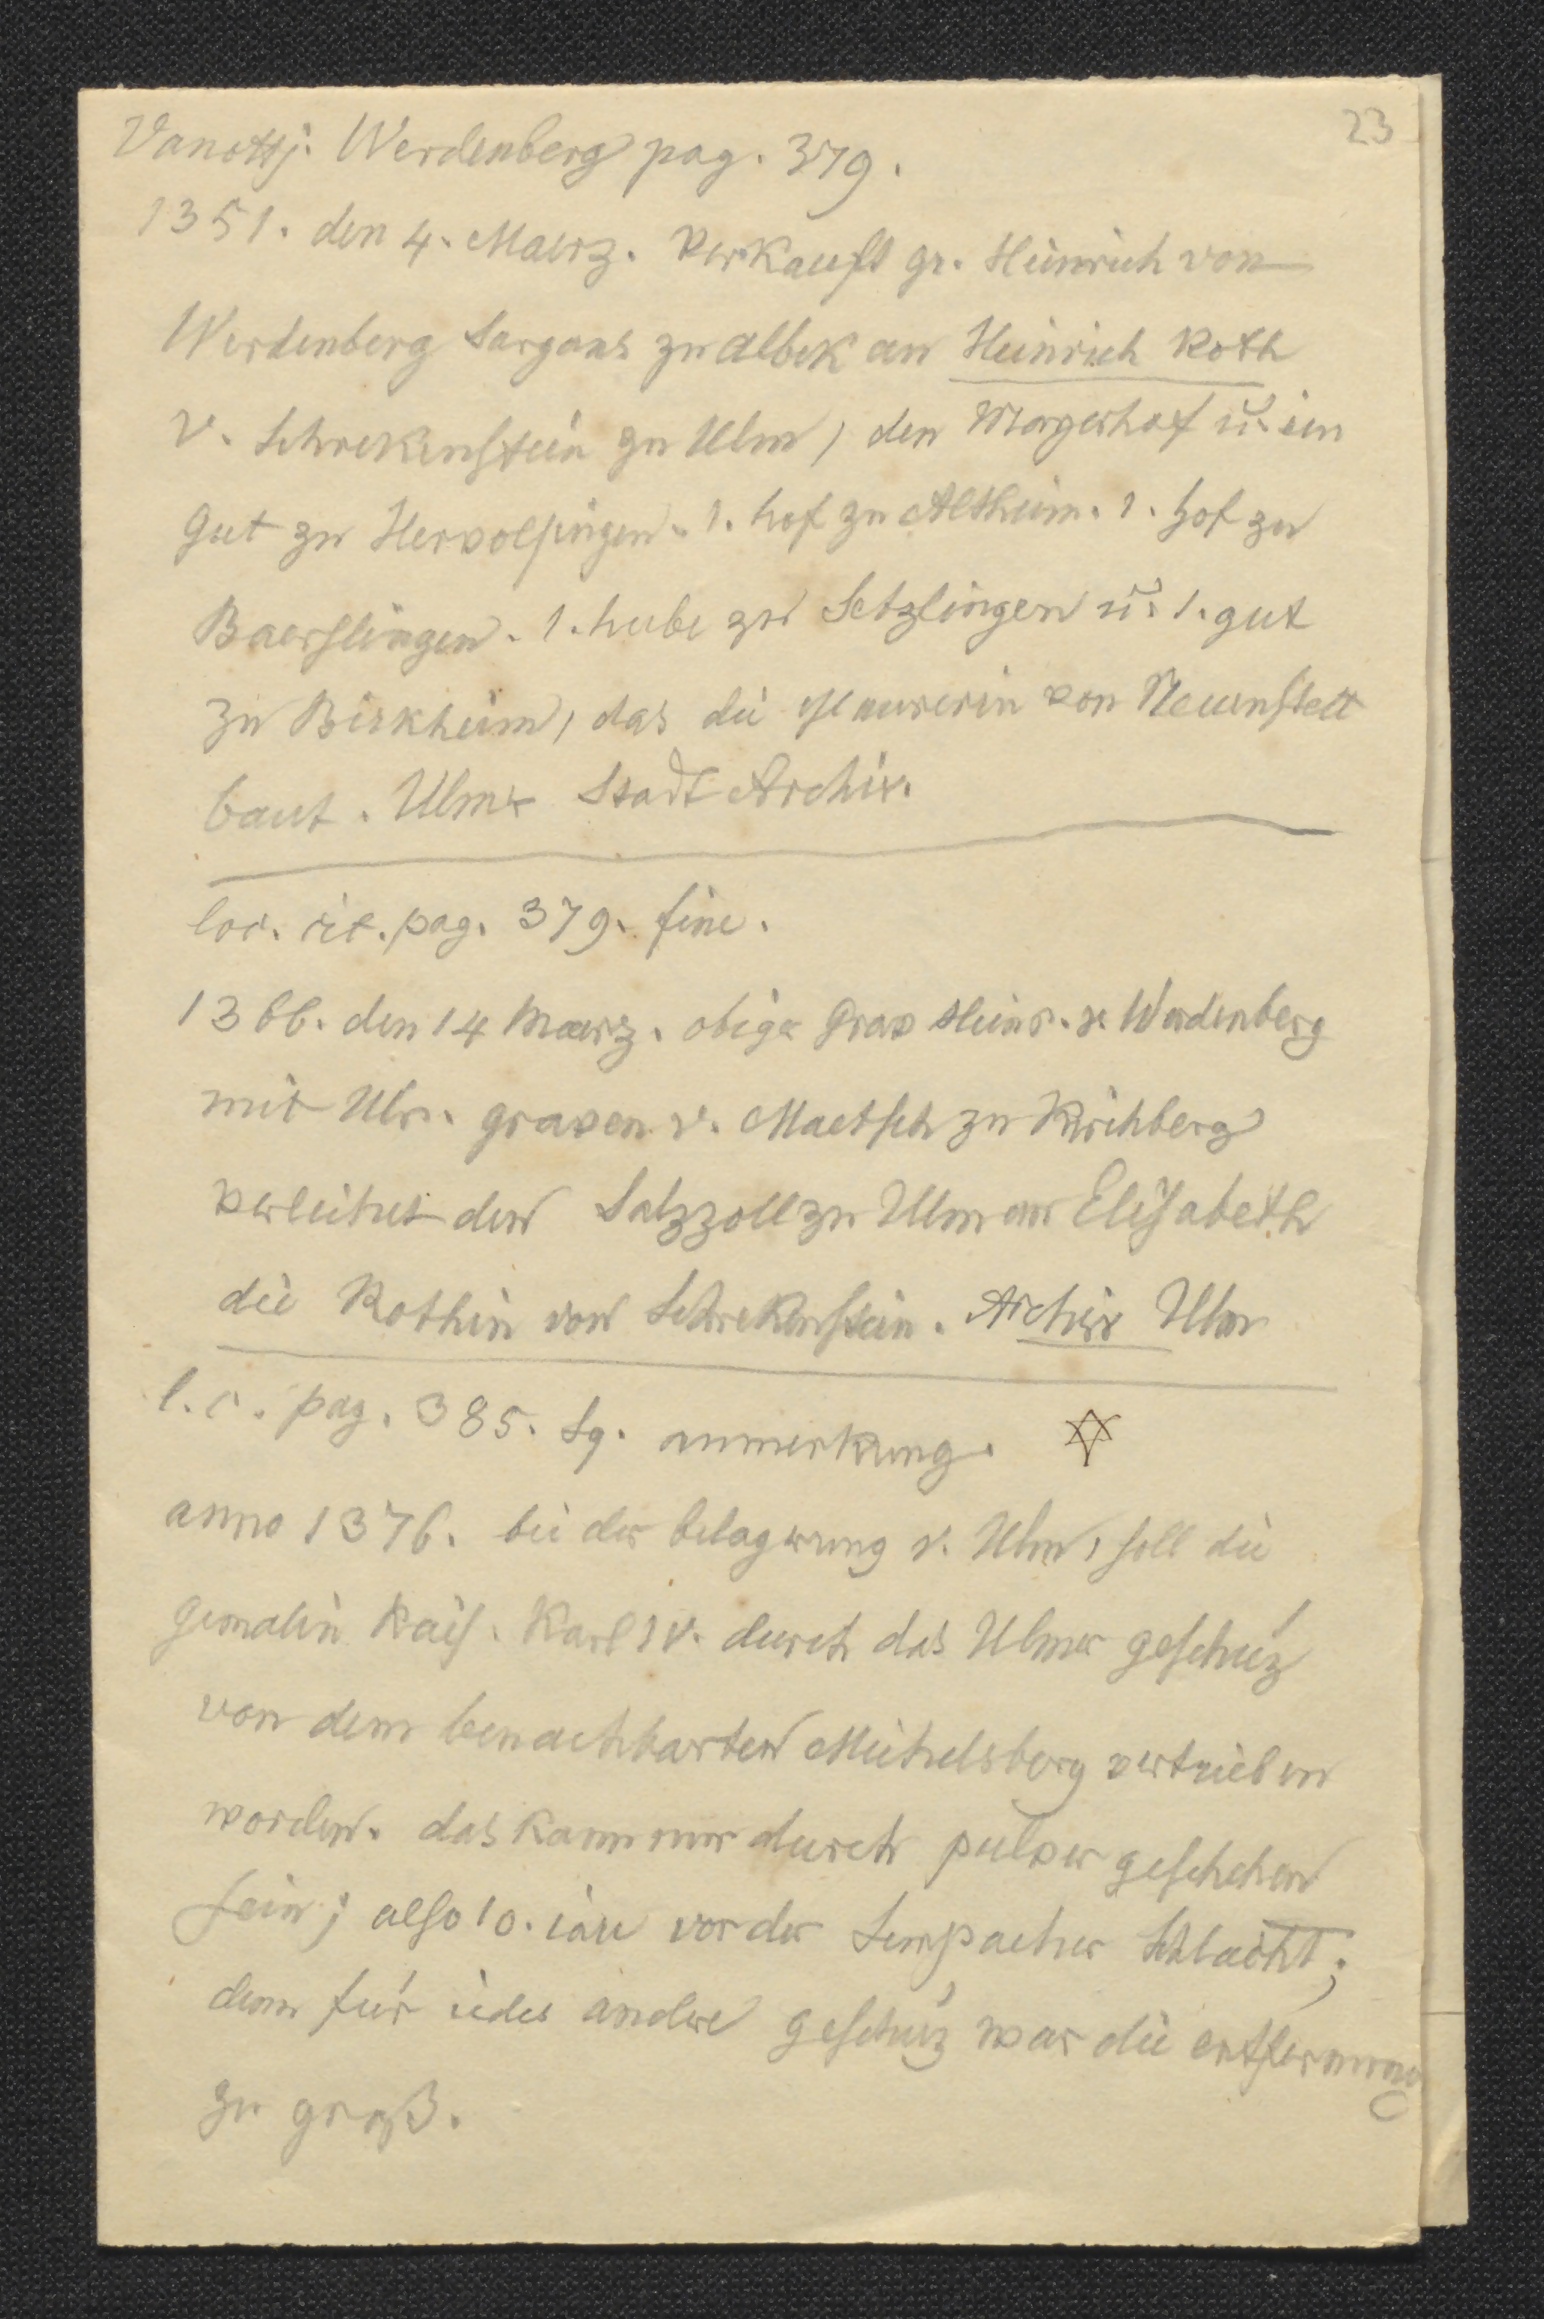 23
Vanottj. Werdenberg pag. 379.
1351. den 4. Maerz. verkauft gr. Heinrich von
Werdenberg Sargans zu albek an Heinrich Roth
v. Schrekenstein zu Ulm, den Mayerhof u. ein
gut zu Hervolfingen. 1. hof zu Altheim. 1. hof zu
Baerslingen. 1. hube zu Setzlingen u. 1. gut
zu Birkheim, das die Maurerin von Neuenstett
baut. Ulmer Stadt Archiv.
loc. cit. pag. 379. fine.
1366. den 14 Maerz. obiger Grav Heinr. v. Werdenberg
mit Ulr. graven v. Maetsch zu Kirchberg
verleihet den Salzzoll zu Ulm an Elisabeth
die Rothin von Schrekenstein. Archiv Ulm
l. c. pag. 385. sq. anmerkung.
anno 1376. bei der belagerung v. Ulm, soll die
gemalin Kais. Karl IV. durch das Ulmer geschüz
von dem benachbarten Michelsberg vertrieben
worden. das kann nur durch pulver geschehen
sein; also 10. iare vor der Sempacher Schlacht;
denn für iedes andere geschüz war die entfernung
zu groß.